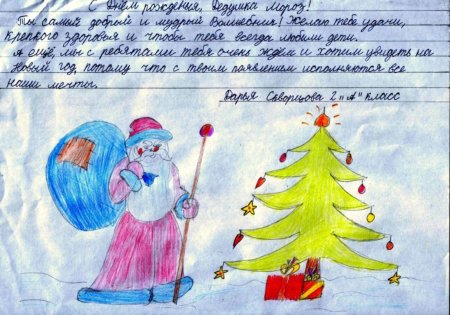 С Днём рождения, Дедушка Мороз!
Ты самый добрый и мудрый Волшебник! Желаю тебе удачи,
крепкого здоровья и чтобы тебя всегда любили дети.
А ещё, мы с ребятами тебя очень ждём и хотим увидеть на
Новый год, потому что с твоим появлением исполняются все
наши мечты.
Дарья Скворцова 2 „А" класс